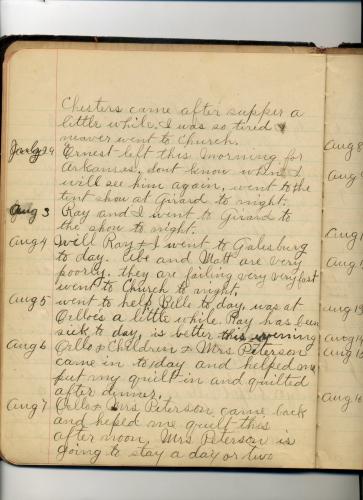 Chesters came after supper a
little while. I was so tired I
neaver went to Church.
July 29 Ernest left this morning for
Arkansas, dont know when I
will see him again, went to the
tent show at Girard to night.
Aug 3 Ray and I went to Girard to
the show to night.
Aug 4 Will Ray & I went to Galesburg
to day. Abe and Matt are very
poorly. they are failing very very fast
went to Church to night.
Aug 5 went to help Belle to day, was at
Orlloes a little while Ray has been
sick to day, is better this evening
Aug 6 Orllo & Children & Mrs Peterson
came in to day and helped me
put my quilt in and quilted
after dinner.
Aug 7 Orllo & Mrs Peterson came back
and helped me quilt this
after noon, Mrs Peterson is
going to stay a day or two
Aug 8
Aug
Aug 1
Aug 1
Aug 13
Aug 14
Aug 1
Aug 16